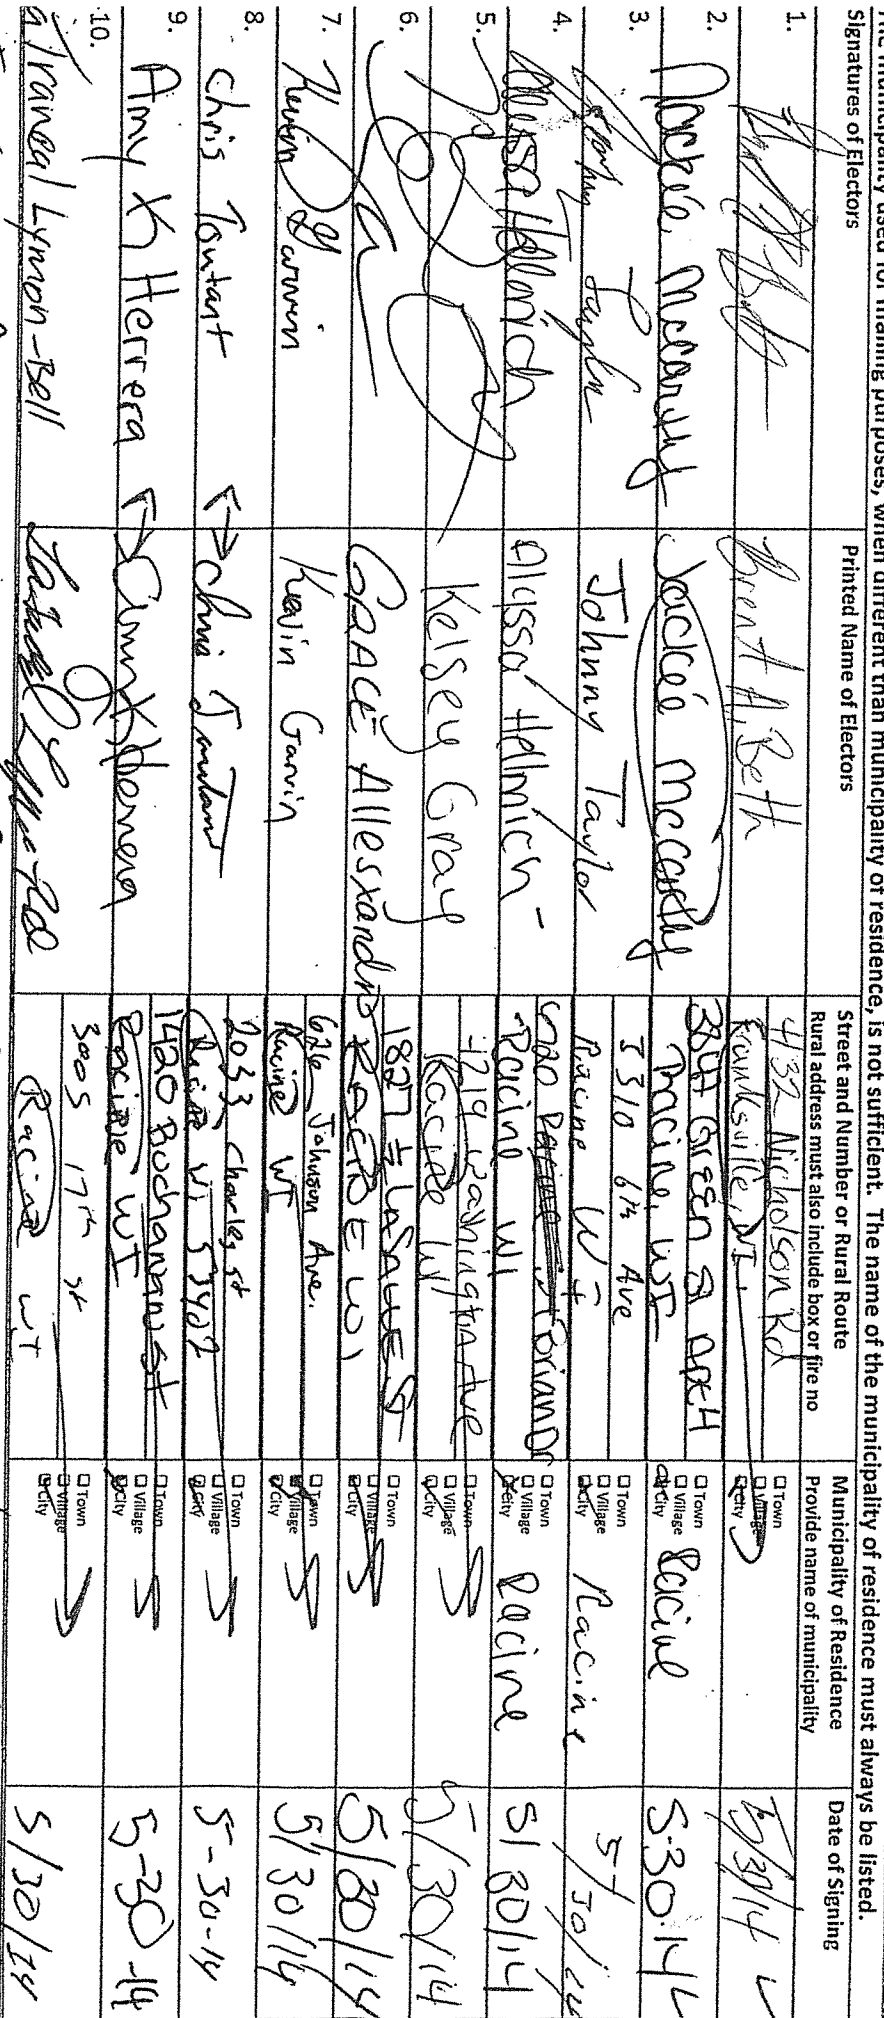 The municipality used for mailing purposes, when different than municipality of residence, is not sufficient. The name of the municipality of residence must always be listed.
Signatures of Electors
Printed Name of Electors
Street and Number or Rural Route
Rural address must also include box or fire no
Municipality of Residence
Provide name of municipality
Date of Signing
1.
Brent A. Beth
432 Nicholson Rd
Franksville, WI
□ Town
□ Village
□ City
5/30/14
2.
Jackie McCarthy
Jackie McCarthy
3841 Green St Apt 4
Racine, WI
□ Town
□ Village
□ City
Racine
5-30-14
3.
Taylor
Johnny Taylor
3310 6th Ave
Racine WI
□ Town
□ Village
□ City
Racine
5/30/14
4.
Alyssa Hellmich
Alyssa Hellmich
Dorian Dr
Racine WI
□ Town
□ Village
□ City
Racine
5/30/14
5.
Kelsey Gray
1219 Washington Ave
Racine WI
□ Town
□ Village
□ City
5/30/14
6.
GRACE Allessandro
1827 ½ LaSalle St
RACINE WI
□ Town
□ Village
□ City
5/30/14
7.
Kevin Garvin
Kevin Garvin
626 Johnson Ave.
Racine WI
□ Town
□ Village
□ City
5/30/14
8.
Chris Toutant
Chris Toutant
2033 Charles st
Racine WI 53402
□ Town
□ Village
□ City
5-30-14
9.
Amy K Herrera
Amy K Herrera
1420 Buchanan St
Racine WI
□ Town
□ Village
□ City
5-30-14
10.
Lymon-Bell
3005 17th st
Racine WI
□ Town
□ Village
□ City
5/30/14